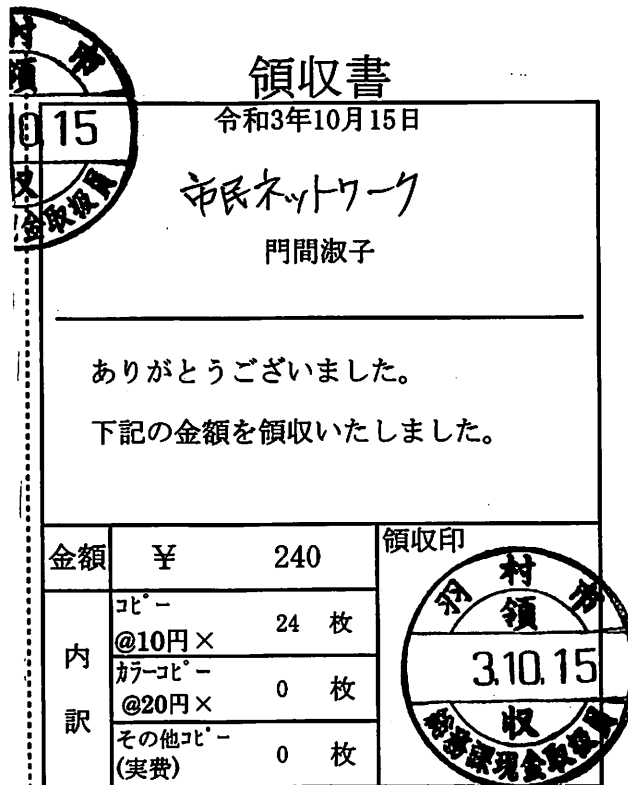 領収書
令和3年10月15日
市民ネットワーク
門間淑子
ありがとうございました。
下記の金額を領収いたしました。
金額 ¥ 240
領収印
内訳
コピー
@10円× 24 枚
カラーコピー
@20円× 0 枚
その他コピー
(実費) 0 枚
羽村市
領
3.10.15
収
総務課現金取扱員
村市
領
10.15
収
金取扱員